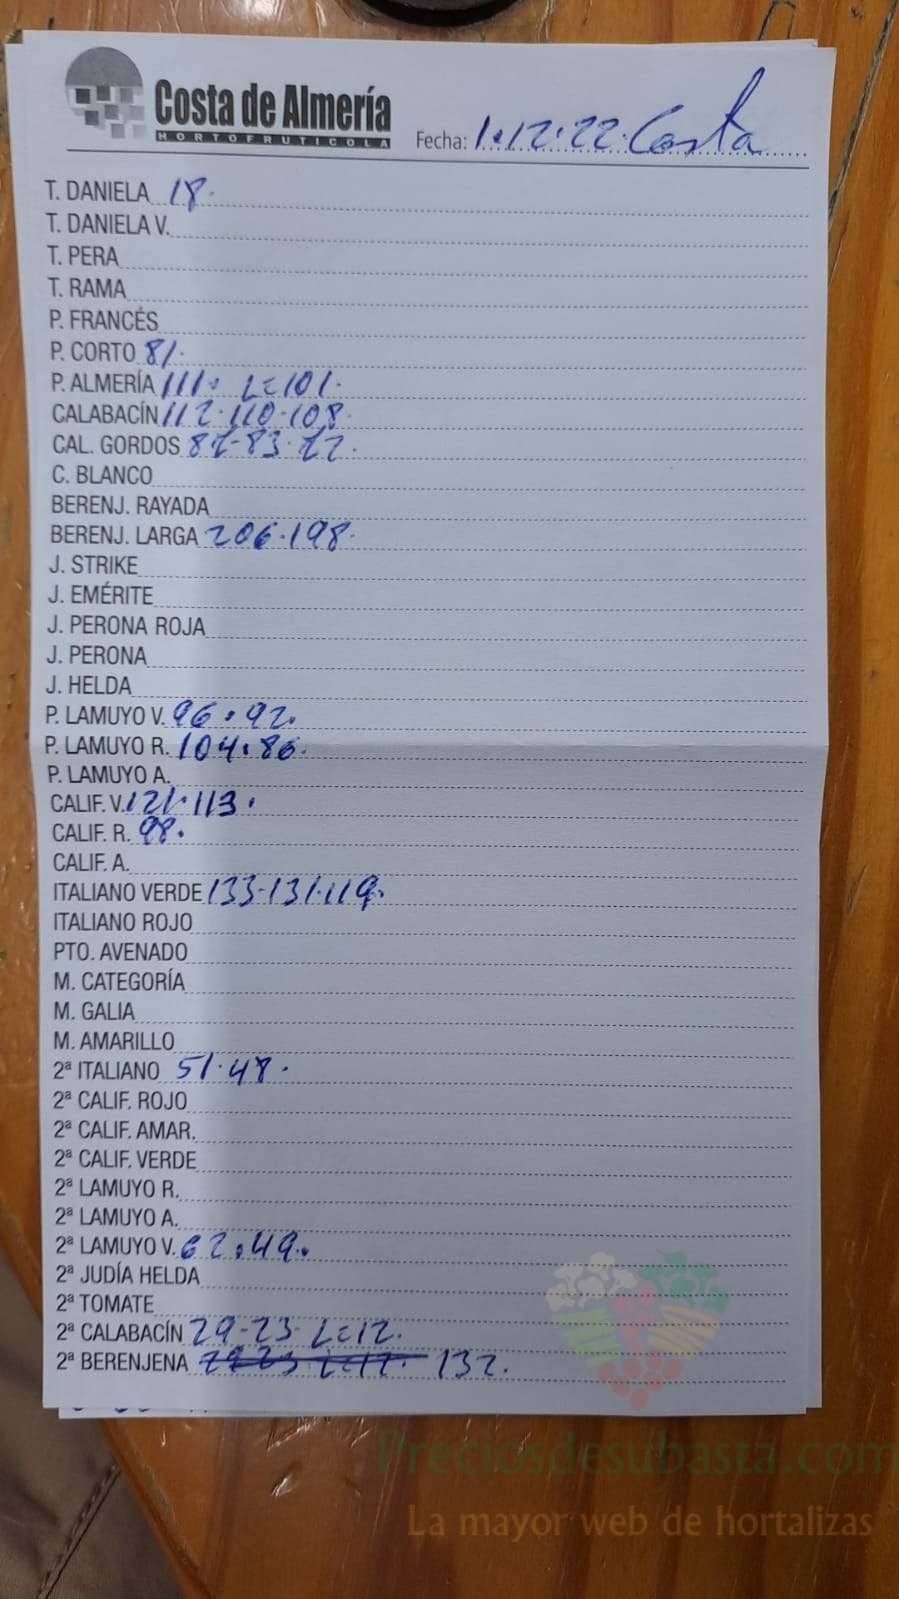 Costa de Almería
HORTOFRUTICOLA
Fecha: 1.12.22. Costa
T. DANIELA 18.
T. DANIELA V.
T. PERA
T. RAMA
P. FRANCÉS
P. CORTO 81.
P. ALMERÍA 111. L=101.
CALABACÍN 112-110-108.
CAL. GORDOS
C. BLANCO
BERENJ. RAYADA
BERENJ. LARGA 206-198.
J. STRIKE
J. EMÉRITE
J. PERONA ROJA
J. PERONA
J. HELDA
P. LAMUYO V. 96.92.
P. LAMUYO R. 104.86.
P. LAMUYO A.
CALIF. V. 121.113.
CALIF. R. 98.
CALIF. A.
ITALIANO VERDE 133-131.119.
ITALIANO ROJO
PTO. AVENADO
M. CATEGORÍA
M. GALIA
M. AMARILLO
2ª ITALIANO 51.48.
2ª CALIF. ROJO
2ª CALIF. AMAR.
2ª CALIF. VERDE
2ª LAMUYO R.
2ª LAMUYO A.
2ª LAMUYO V. 62.49.
2ª JUDÍA HELDA
2ª TOMATE
2ª CALABACÍN 29-23. L=12.
2ª BERENJENA 132.
Preciosdesubasta.com
La mayor web de hortalizas